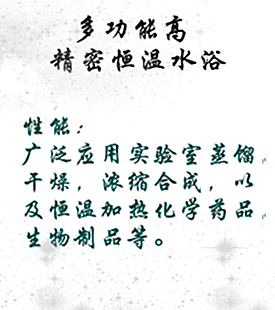 多功能高
精密恒温水浴
性能：
广泛应用实验室蒸馏，
干燥，浓缩合成，以
及恒温加热化学药品，
生物制品等。